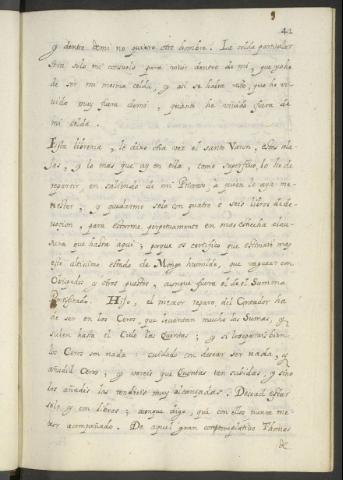 42
y dentro de mi no quiero otro hombre. La celda particular
sera solo mi consuelo para vivir dentro de mi, que
de ser mi misma celda, y asi se
vida muy fuera de mi, quanto ha vivido fuera de
mi celda.
Esta libreria, le dixo otra vez el santo Varon, estas
y lo mas que ay en ella, como superfluo lo he de
repartir, en saliendo de mi Priorato, a quien lo aya me-
nester, y quedarme solo con quatro o seis libros de de-
vocion, para estarme perpetuamente en mas estrecha clau-
sura que hasta aqui; porque os certifico que estimaré mas
este altissimo estado de Monge humilde, que quantos con
Obispados y otros puestos, aunque fuera el de el Summo
Pontificado. Hijo, el mejor reparo, del Contador ha
de ser en los Ceros que levantan mucho las Sumas, y
suben hasta el Cielo las Quentas; y si los
los Ceros son nada: cuidado con desear ser nada, y
añadid Ceros; y vereis que Quentas tan subidas, y si no
los añadis las tendreis muy alcançadas. Desead estar
solo, y con libros; aunque digo, que con ellos nunca me-
jor acompañado. De aquel gran contemplativo Thomas
de